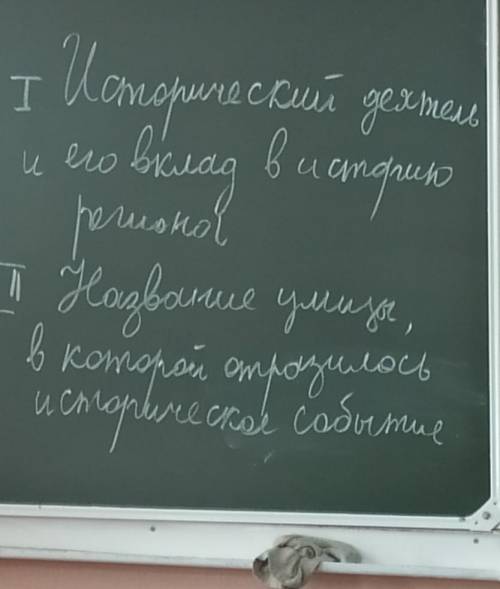 I Исторический деятель
и его вклад в историю
региона
II Название улицы,
в которой отразилось
историческое событие